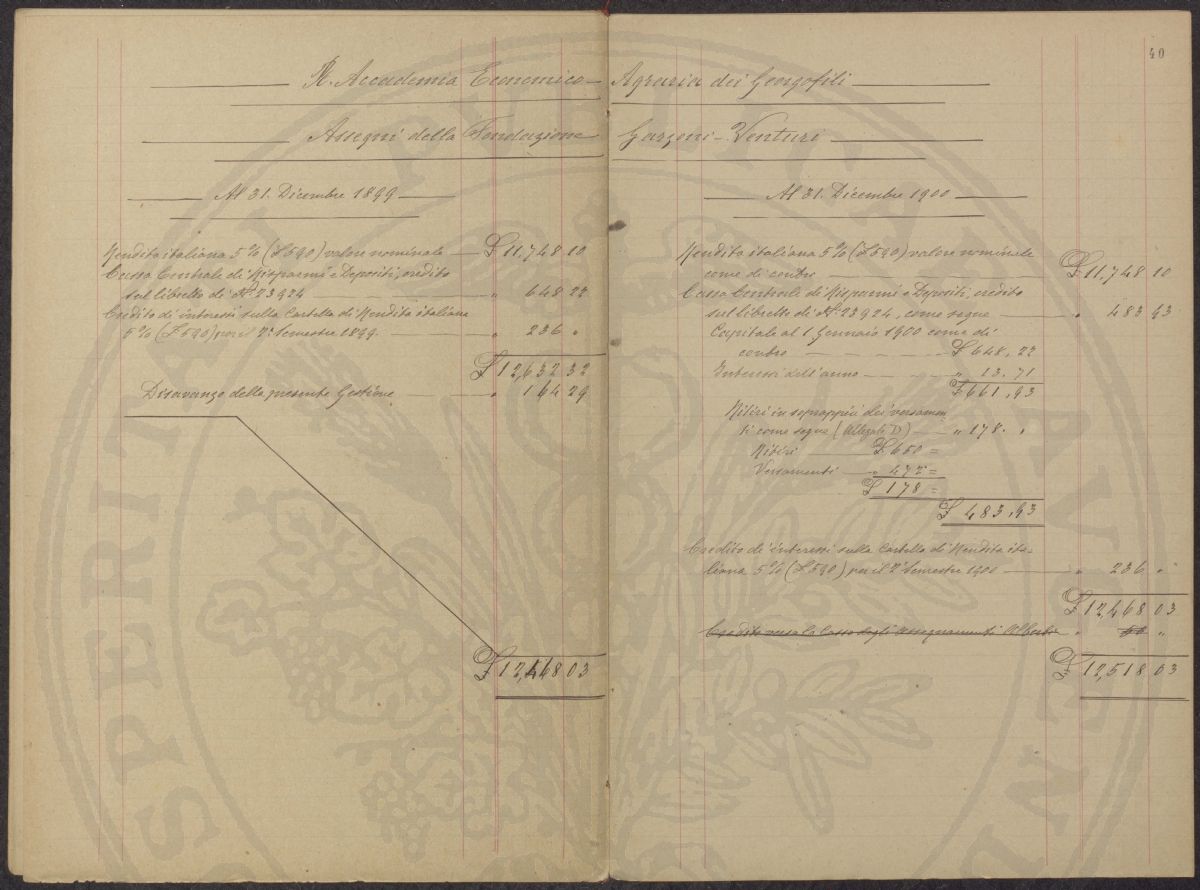 40
R. Accademia Economico-Agraria dei Georgofili
Assegni della Fondazione Garzoni-Venturi
Al 31. Dicembre 1899
Rendita italiana 5% (£ 590) valore nominale £ 11,748 10
Cassa Centrale di Risparmi e Depositi, credito
sul libretto di N.° 23924 " 648 22
Credito di interessi sulla Cartella di Rendita italiana
5% (£ 590) per il 2° Semestre 1899 " 236 "
£ 12,632 32
Disavanzo della presente Gestione " 164 29
£ 12,468 03
Al 31. Dicembre 1900
Rendita italiana 5% (£ 590) valore nominale
come di contro £ 11,748 10
Cassa Centrale di Risparmi e Depositi, credito
sul libretto di N.° 23924, come segue " 483 93
Capitale al 1 Gennaio 1900 come di
contro £ 648,22
Interessi dell'anno " 13.71
£ 661,93
Ritiri in soprappiù dei versamen
ti come segue (Allegato D) " 178. "
Ritiri £ 650 =
Versamenti " 472 =
£ 178 =
£ 483,93
Credito di interessi sulla Cartella di Rendita ita-
liana 5% (£ 590) per il 2° Semestre 1900 " 236 "
£ 12,468 03
Credito verso la Cassa degli Assegnamenti Alberti " 50 "
£ 12,518 03
SPERITAT PUBLICAE